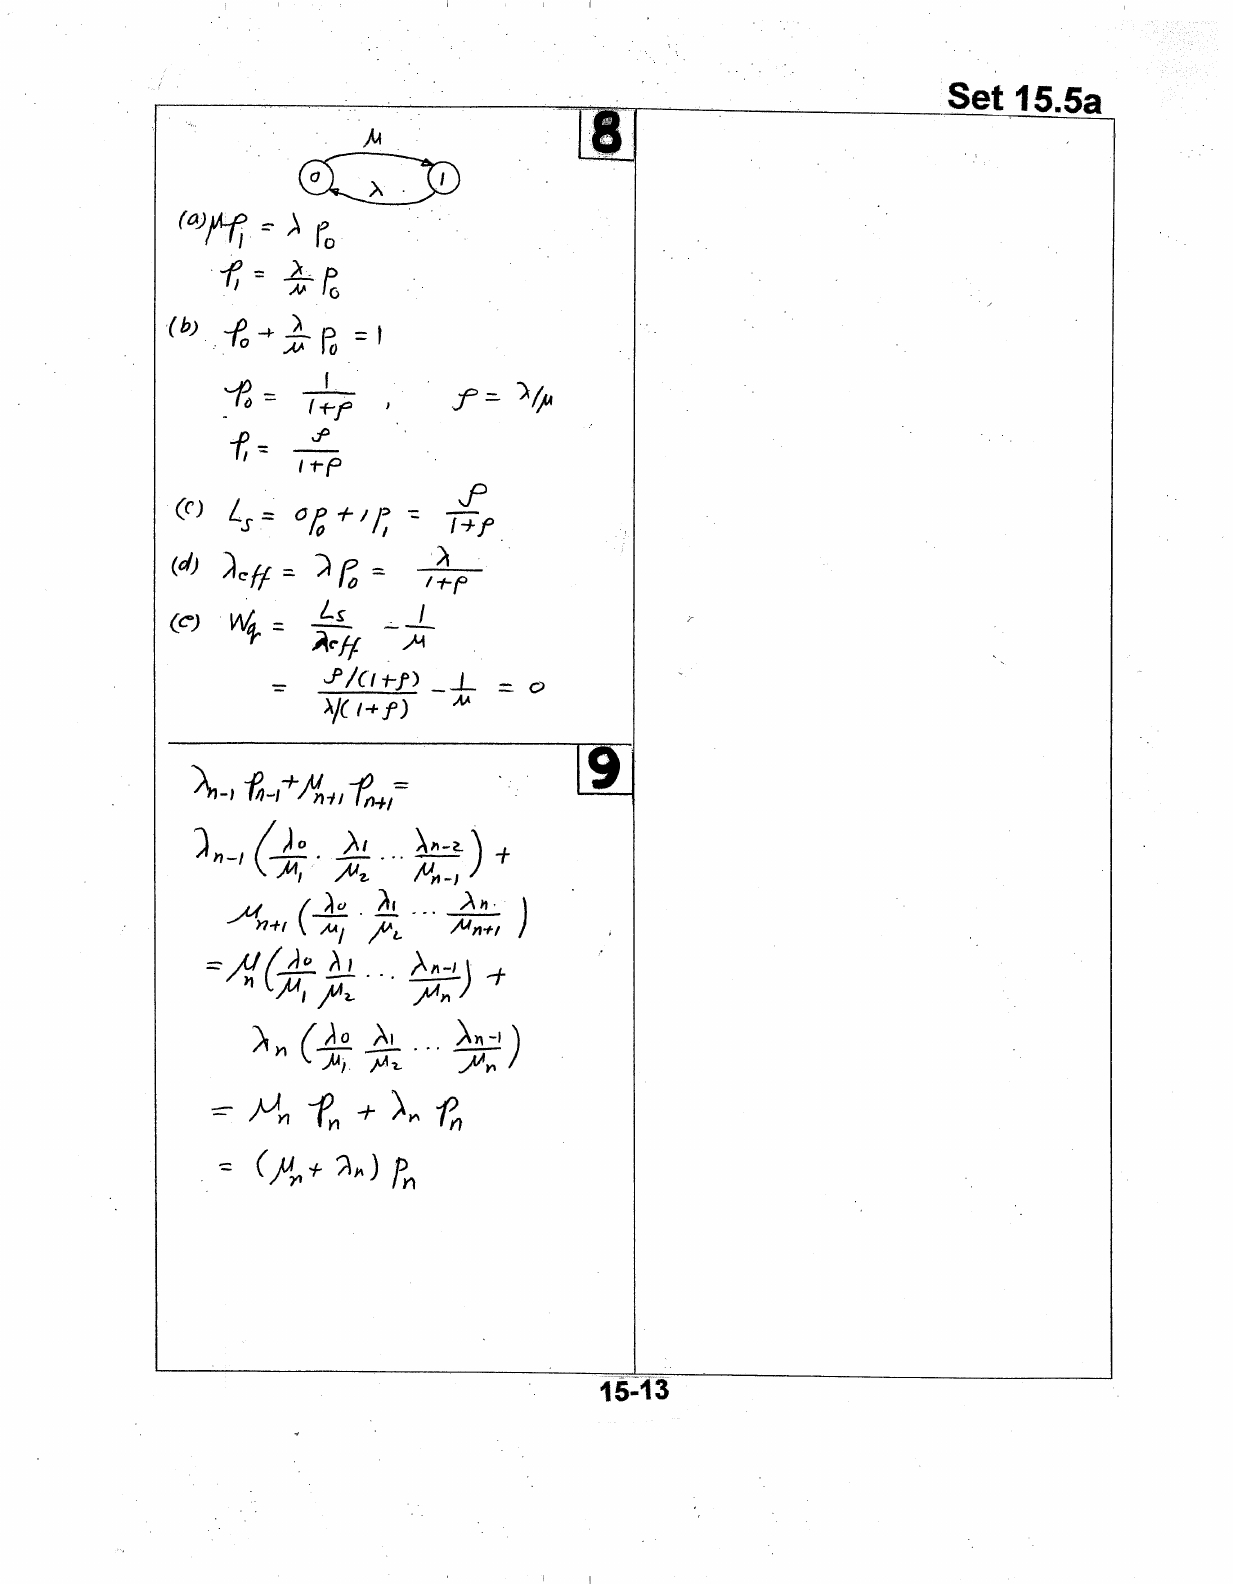 Set 15.5a
8
μ
0 λ 1
(a) μp₁ = λ p₀
p₁ = λ/μ p₀
(b) p₀ + λ/μ p₀ = 1
p₀ = 1/(1+ρ) , ρ = λ/μ
p₁ = ρ/(1+ρ)
(c) Ls = 0p₀ + 1p₁ = ρ/(1+ρ)
(d) λeff = λp₀ = λ/(1+ρ)
(e) Wq = Ls/λeff - 1/μ
= ρ/(1+ρ) / λ/(1+ρ) - 1/μ = 0
9
λn-1 pn-1 + μn+1 pn+1 =
λn-1 (λ0/μ1 · λ1/μ2 ... λn-2/μn-1) +
μn+1 (λ0/μ1 · λ1/μ2 ... λn/μn+1)
= μn (λ0/μ1 λ1/μ2 ... λn-1/μn) +
λn (λ0/μ1 λ1/μ2 ... λn-1/μn)
= μn pn + λn pn
= (μn + λn) pn
15-13